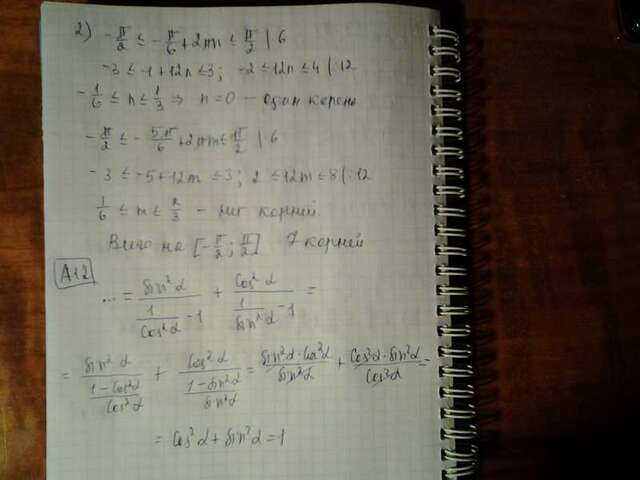 2) -π/2 ≤ -π/6 + 2πn ≤ π/2 | 6
-3 ≤ -1 + 12n ≤ 3; -2 ≤ 12n ≤ 4 | :12
-1/6 ≤ n ≤ 1/3 ⇒ n = 0 — один корень
-π/2 ≤ -5π/6 + 2πm ≤ π/2 | 6
-3 ≤ -5 + 12m ≤ 3; 2 ≤ 12m ≤ 8 | :12
1/6 ≤ m ≤ 2/3 - нет корней.
Всего на [-π/2; π/2] 7 корней
A12
... = sin²α/(1/cos²α - 1) + cos²α/(1/sin²α - 1) =
= sin²α/((1-cos²α)/cos²α) + cos²α/((1-sin²α)/sin²α) = sin²α·cos²α/sin²α + cos²α·sin²α/cos²α =
= cos²α + sin²α = 1